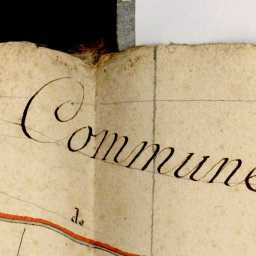 Commune
de